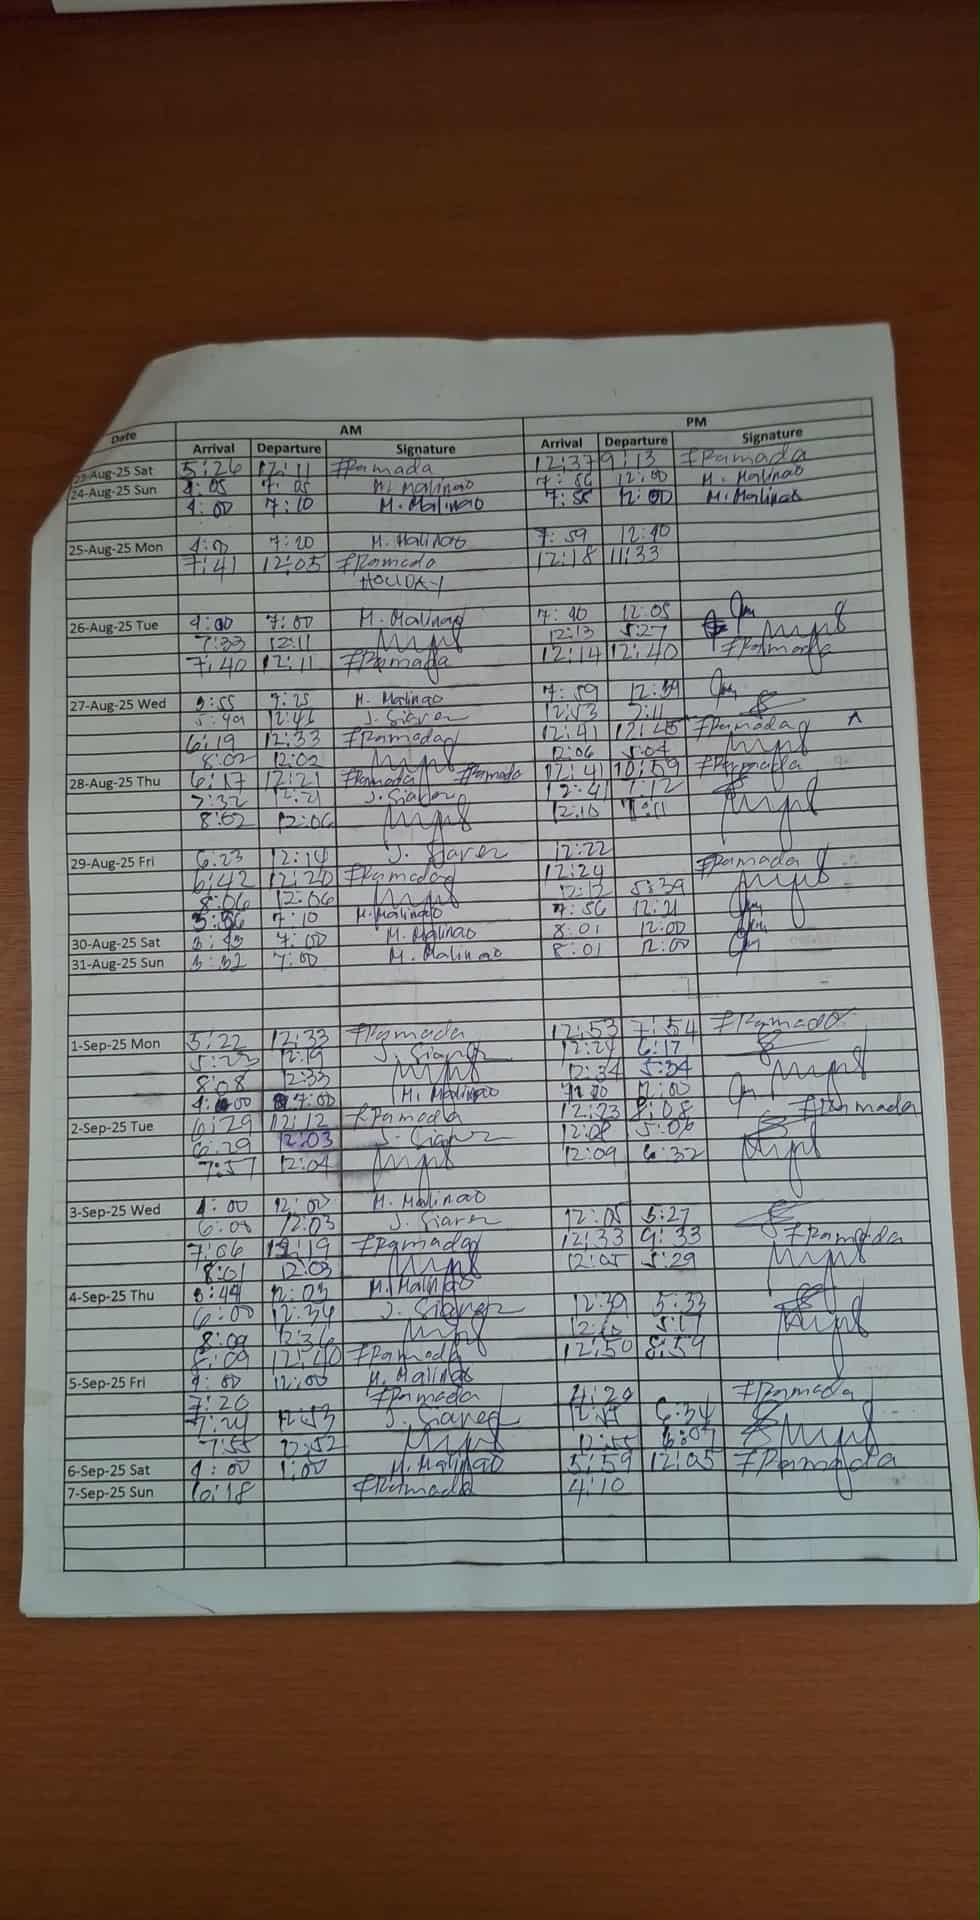 Date AM PM
Arrival Departure Signature Arrival Departure Signature
23-Aug-25 Sat 5:26 12:11 FRamada 12:37 9:13 FRamada
24-Aug-25 Sun 4:05 7:05 M. Malinao 7:56 12:00 M. Malinao
4:00 7:10 M. Malinao 7:55 12:00 M. Malinao
7:59 12:40
25-Aug-25 Mon 7:20 M. Malinao
7:41 12:05 FRamada 12:18 11:33
HOLIDAY
26-Aug-25 Tue 4:00 7:00 M. Malinao 7:40 12:05
7:33 12:11 12:13 5:27
7:40 12:11 FRamada 12:14 12:40 FRamada
27-Aug-25 Wed 3:55 7:25 M. Malinao 7:59 12:39
12:41 J. Siarez 5:11
6:19 12:33 FRamada 12:41 12:45 FRamada
8:02 12:02 12:06 5:04
28-Aug-25 Thu 6:17 12:21 FRamada FRamada 12:41 10:59 FRamada
7:32 12:21 J. Siarez 12:41 7:12
8:02 12:06 12:10 7:11
29-Aug-25 Fri 6:23 12:14 J. Siarez 12:22
6:42 12:20 FRamada 12:24 FRamada
8:06 12:06 12:12 5:39
7:10 M. Malinao 7:56 12:21
30-Aug-25 Sat 7:00 M. Malinao 8:01 12:00
31-Aug-25 Sun 3:32 7:00 M. Malinao 8:01 12:00
1-Sep-25 Mon 5:22 12:33 FRamada 12:53 7:54 FRamada
5:23 12:19 J. Siarez 12:24 6:17
8:08 12:33 12:34 5:34
7:00 M. Malinao 12:00
2-Sep-25 Tue 6:29 12:12 FRamada 12:23 8:08 FRamada
6:29 12:03 J. Siarez 12:08 5:06
7:57 12:04 12:09 6:32
3-Sep-25 Wed 4:00 12:00 M. Malinao
6:08 12:03 J. Siarez 12:05 5:27
7:06 12:19 FRamada 12:33 9:33 FRamada
8:01 12:03 12:05 5:29
4-Sep-25 Thu 3:44 12:03 M. Malinao
6:00 12:34 J. Siarez 12:39 5:33
8:09 12:36
8:09 12:40 FRamada 12:50 8:59
5-Sep-25 Fri 4:00 12:00 M. Malinao
7:20 FRamada 4:20 FRamada
7:24 12:53 J. Siarez 6:34
7:55 12:52 12:55 6:07
6-Sep-25 Sat 4:00 1:00 M. Malinao 5:59 12:05 FRamada
7-Sep-25 Sun 6:18 FRamada 4:10